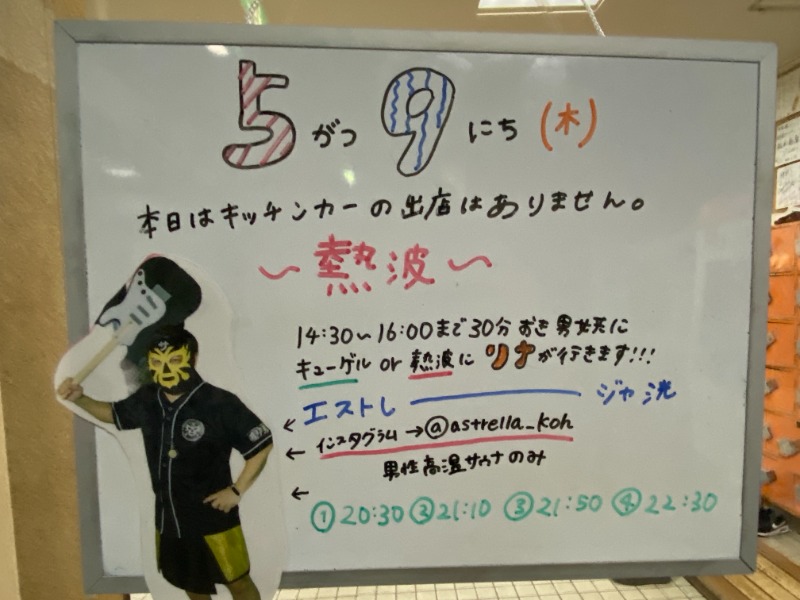 5がつ9にち(木)
本日はキッチンカーの出店はありません。
~熱波~
14:30~16:00まで30分おき男女共に
キューゲル or 熱波にリナが行きます!!!
← エストレ ジャ 洸
← インスタグラム→@astrella_koh
男性高温サウナのみ
← ①20:30 ②21:10 ③21:50 ④22:30